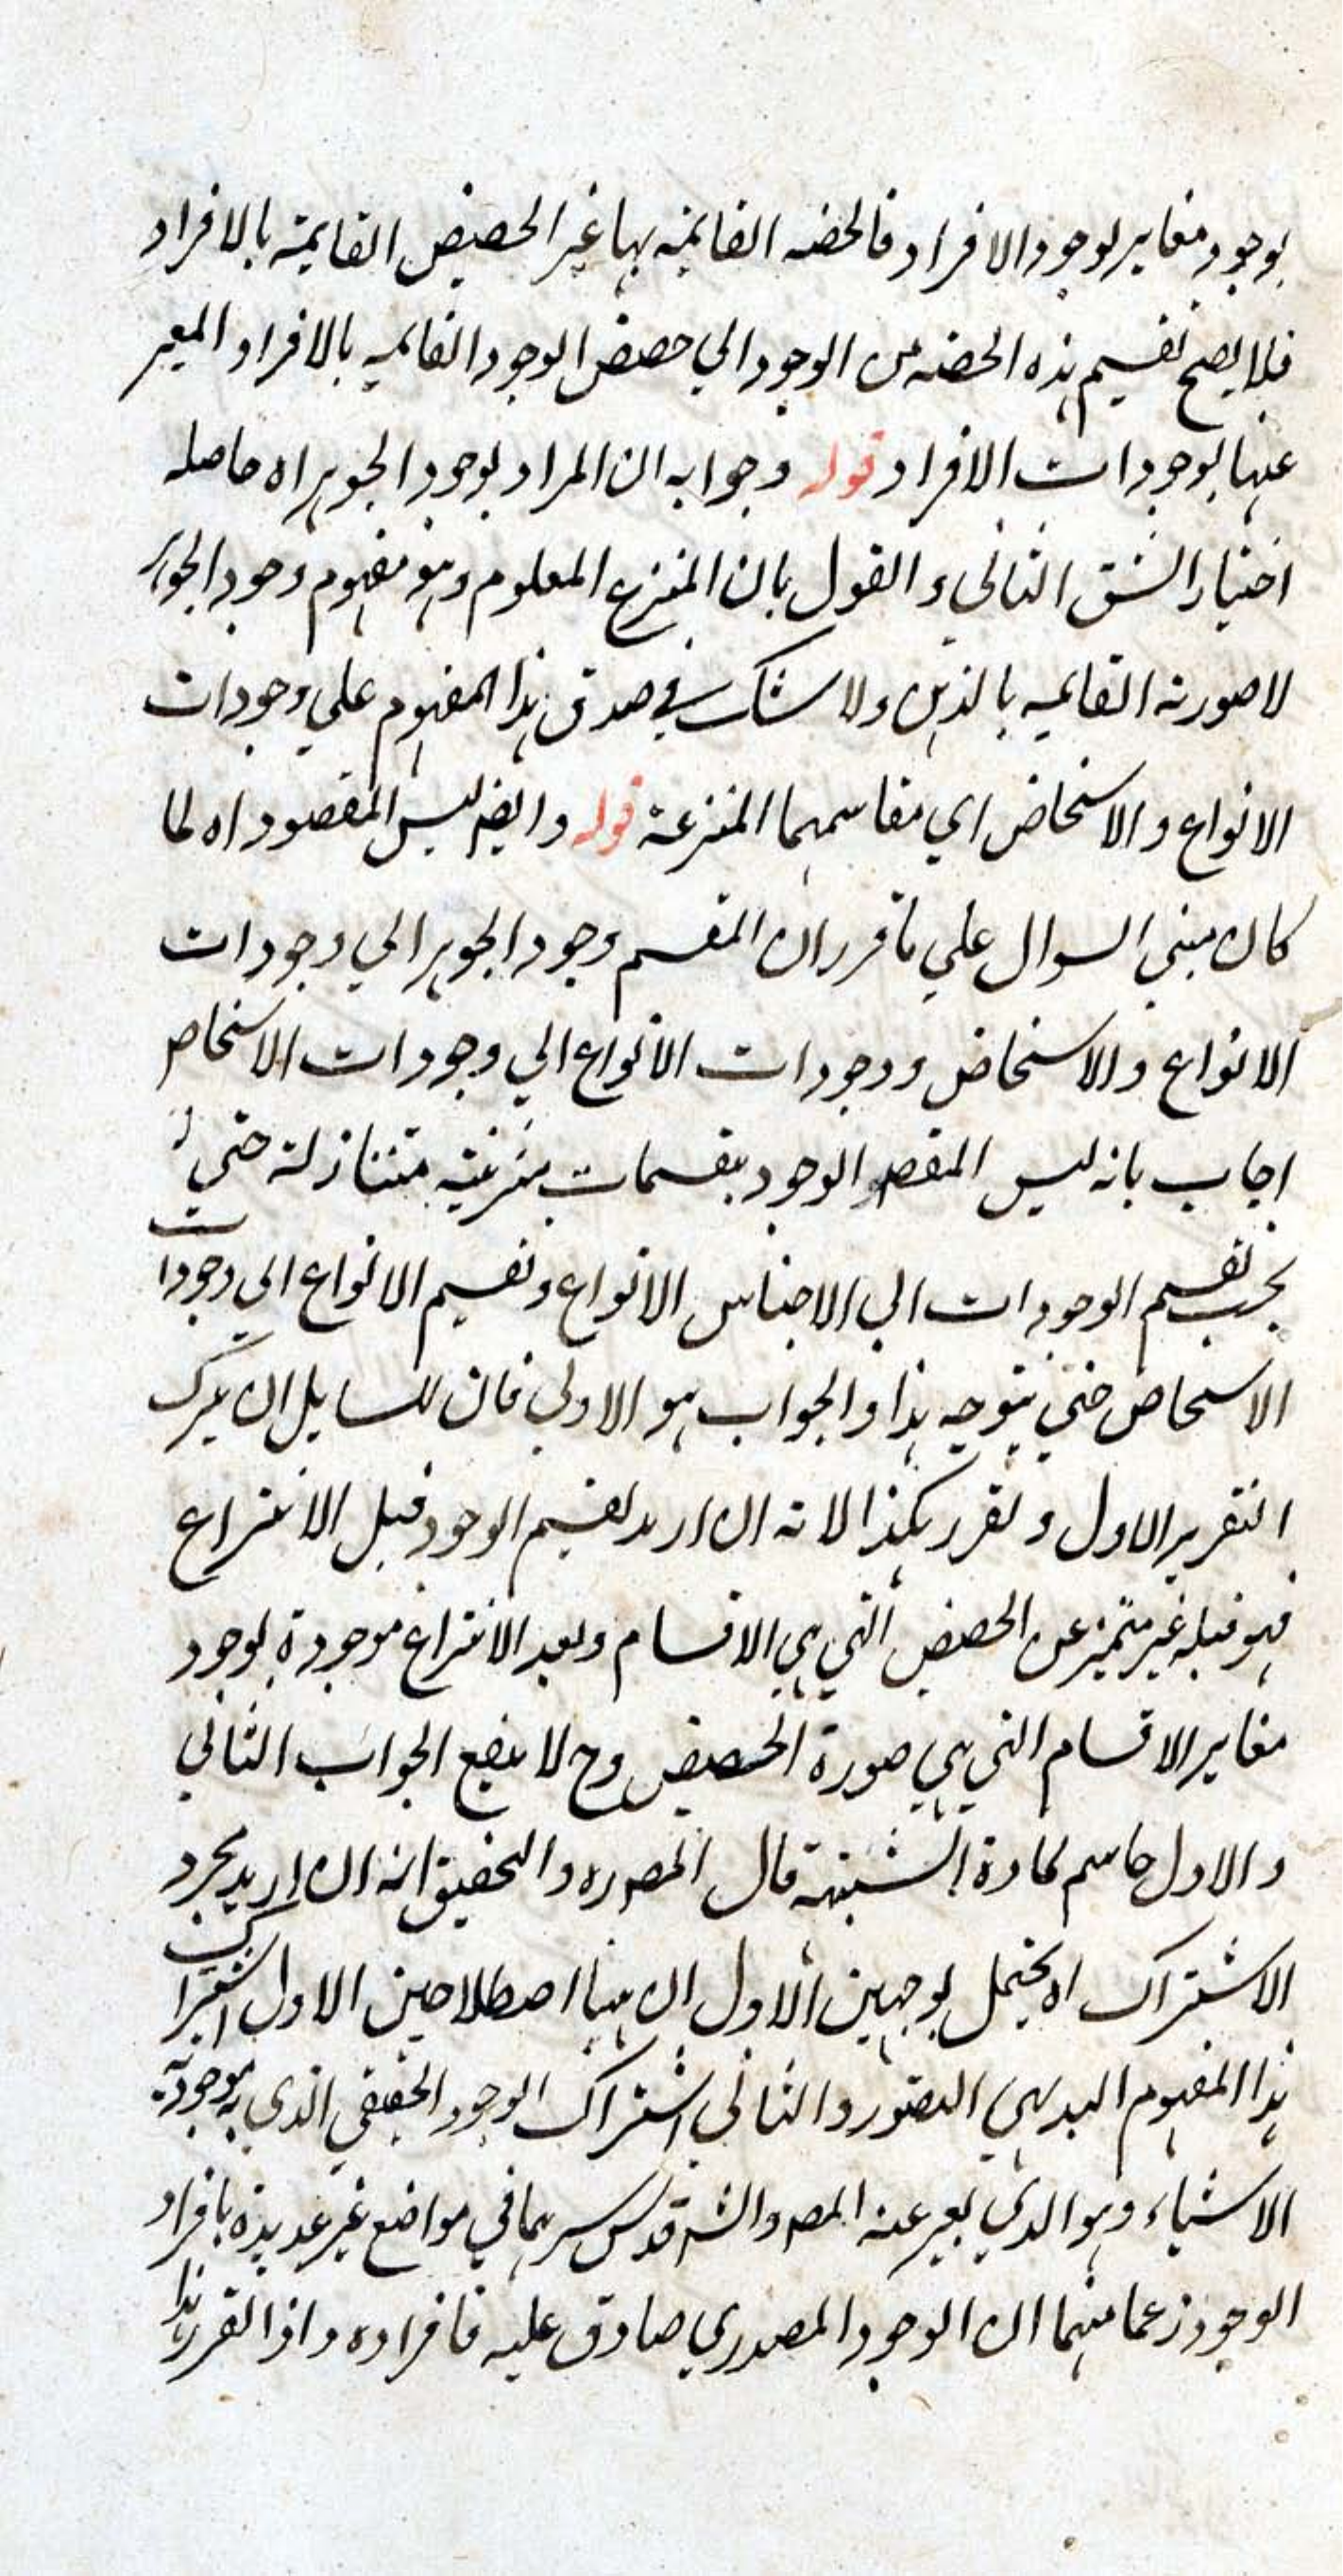 بوجود مغاير لوجود الافراد فالحصه القائمه بها غير الحصص القايمة بالافراد
فلا يصح تقسيم هذه الحصه من الوجود الي حصص الوجود القائميه بالافراد المعبر
عنها بوجودات الافراد قوله وجوابه ان المراد بوجود الجوهر اه حاصله
اختيار الشق الثاني و القول بان المنتزع المعلوم وهو مفهوم وجود الجوهر
لا صورته القائميه بالذهن ولا شك في صدق هذا المفهوم علي وجودات
الانواع و الاشخاص اي مفاسمهما المنتزعة قوله وايضا ليس المقصود اه لما
كان مبني السوال علي ما قرر ان المقسم وجود الجوهر الي وجودات
الانواع والاشخاص ووجودات الانواع الي وجودات الاشخاص
اجاب بانه ليس المقصود الوجود بقسمات متنازلة حتي
يجب تقسيم الوجودات الي الاجناس الانواع وتقسيم الانواع الي وجودات
الاشخاص حتي يتوجه هذا والجواب هو الاولي فان للسايل ان يترك
التقرير الاول و تقرر هكذا لانه ان اريد تقسيم الوجود قبل الانتزاع
فهو قبله غير متميز عن الحصص التي هي الاقسام وبعد الانتزاع موجودة بوجود
مغاير الاقسام التي هي صورة الحصص وح لا ينفع الجواب الثاني
و الاول حاسم لمادة الشبهة قال المصره والتحقيق انه ان اريد مجرد
الاشتراك اه يحتمل بوجهين الاول ان هنا اصطلاحين الاول اشتراك
هذا المفهوم البديهي التصور والثاني اشتراك الوجود الحقيقي الذي به موجودية
الاشياء وهو الذي يعبر عنه المصـ والشـ قدس سرهما في مواضع غير عديدة بافراد
الوجود زعما منهما ان الوجود المصدري صادق عليه فافراده واذا تقرر هذا